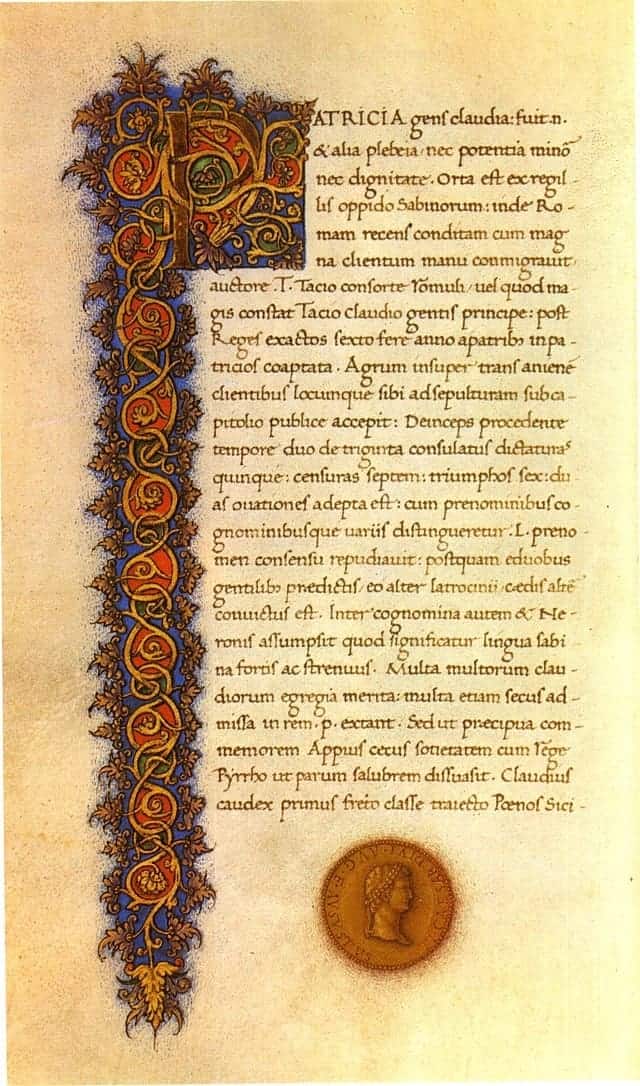 PATRICIA gens claudia: fuit .n.
& alia plebeia: nec potentia minō
nec dignitate. Orta est ex regil-
lis oppido Sabinorum: inde Ro-
mam recens conditam cum mag
na clientum manu conmigrauit
auctore .T. Tacio consorte romuli: uel quod ma-
gis constat Tacio Claudio gentis principe: post
Reges exactos sexto fere anno apatribus inpa-
tricios coaptata. Agrum insuper trans anienē
clientibus locumque sibi ad sepulturam sub ca-
pitolio publice accepit: Deinceps procedente
tempore duo de triginta consulatus dictaturas
quinque: censuras septem: triumphos sex: du-
as ouationes adepta est: cum prenominibus co-
gnominibusque uariis distingueretur. L. preno
men consensu repudiauit: postquam eduobus
gentilibus prædictis: eo alter latrocinii: cædis altē
conuictus est. Inter cognomina autem & Ne-
ronis assumpsit quod significatur lingua sabi-
na fortis ac strenuus. Multa multorum clau-
diorum egregia merita: multa etiam secus ad-
missa in rem .p. extant. Sed ut præcipua com-
memorem Appius cecus societatem cum rege
Pyrrho ut parum salubrem dissuasit. Claudius
caudex primus freto classe traiecto Pœnos Sici-